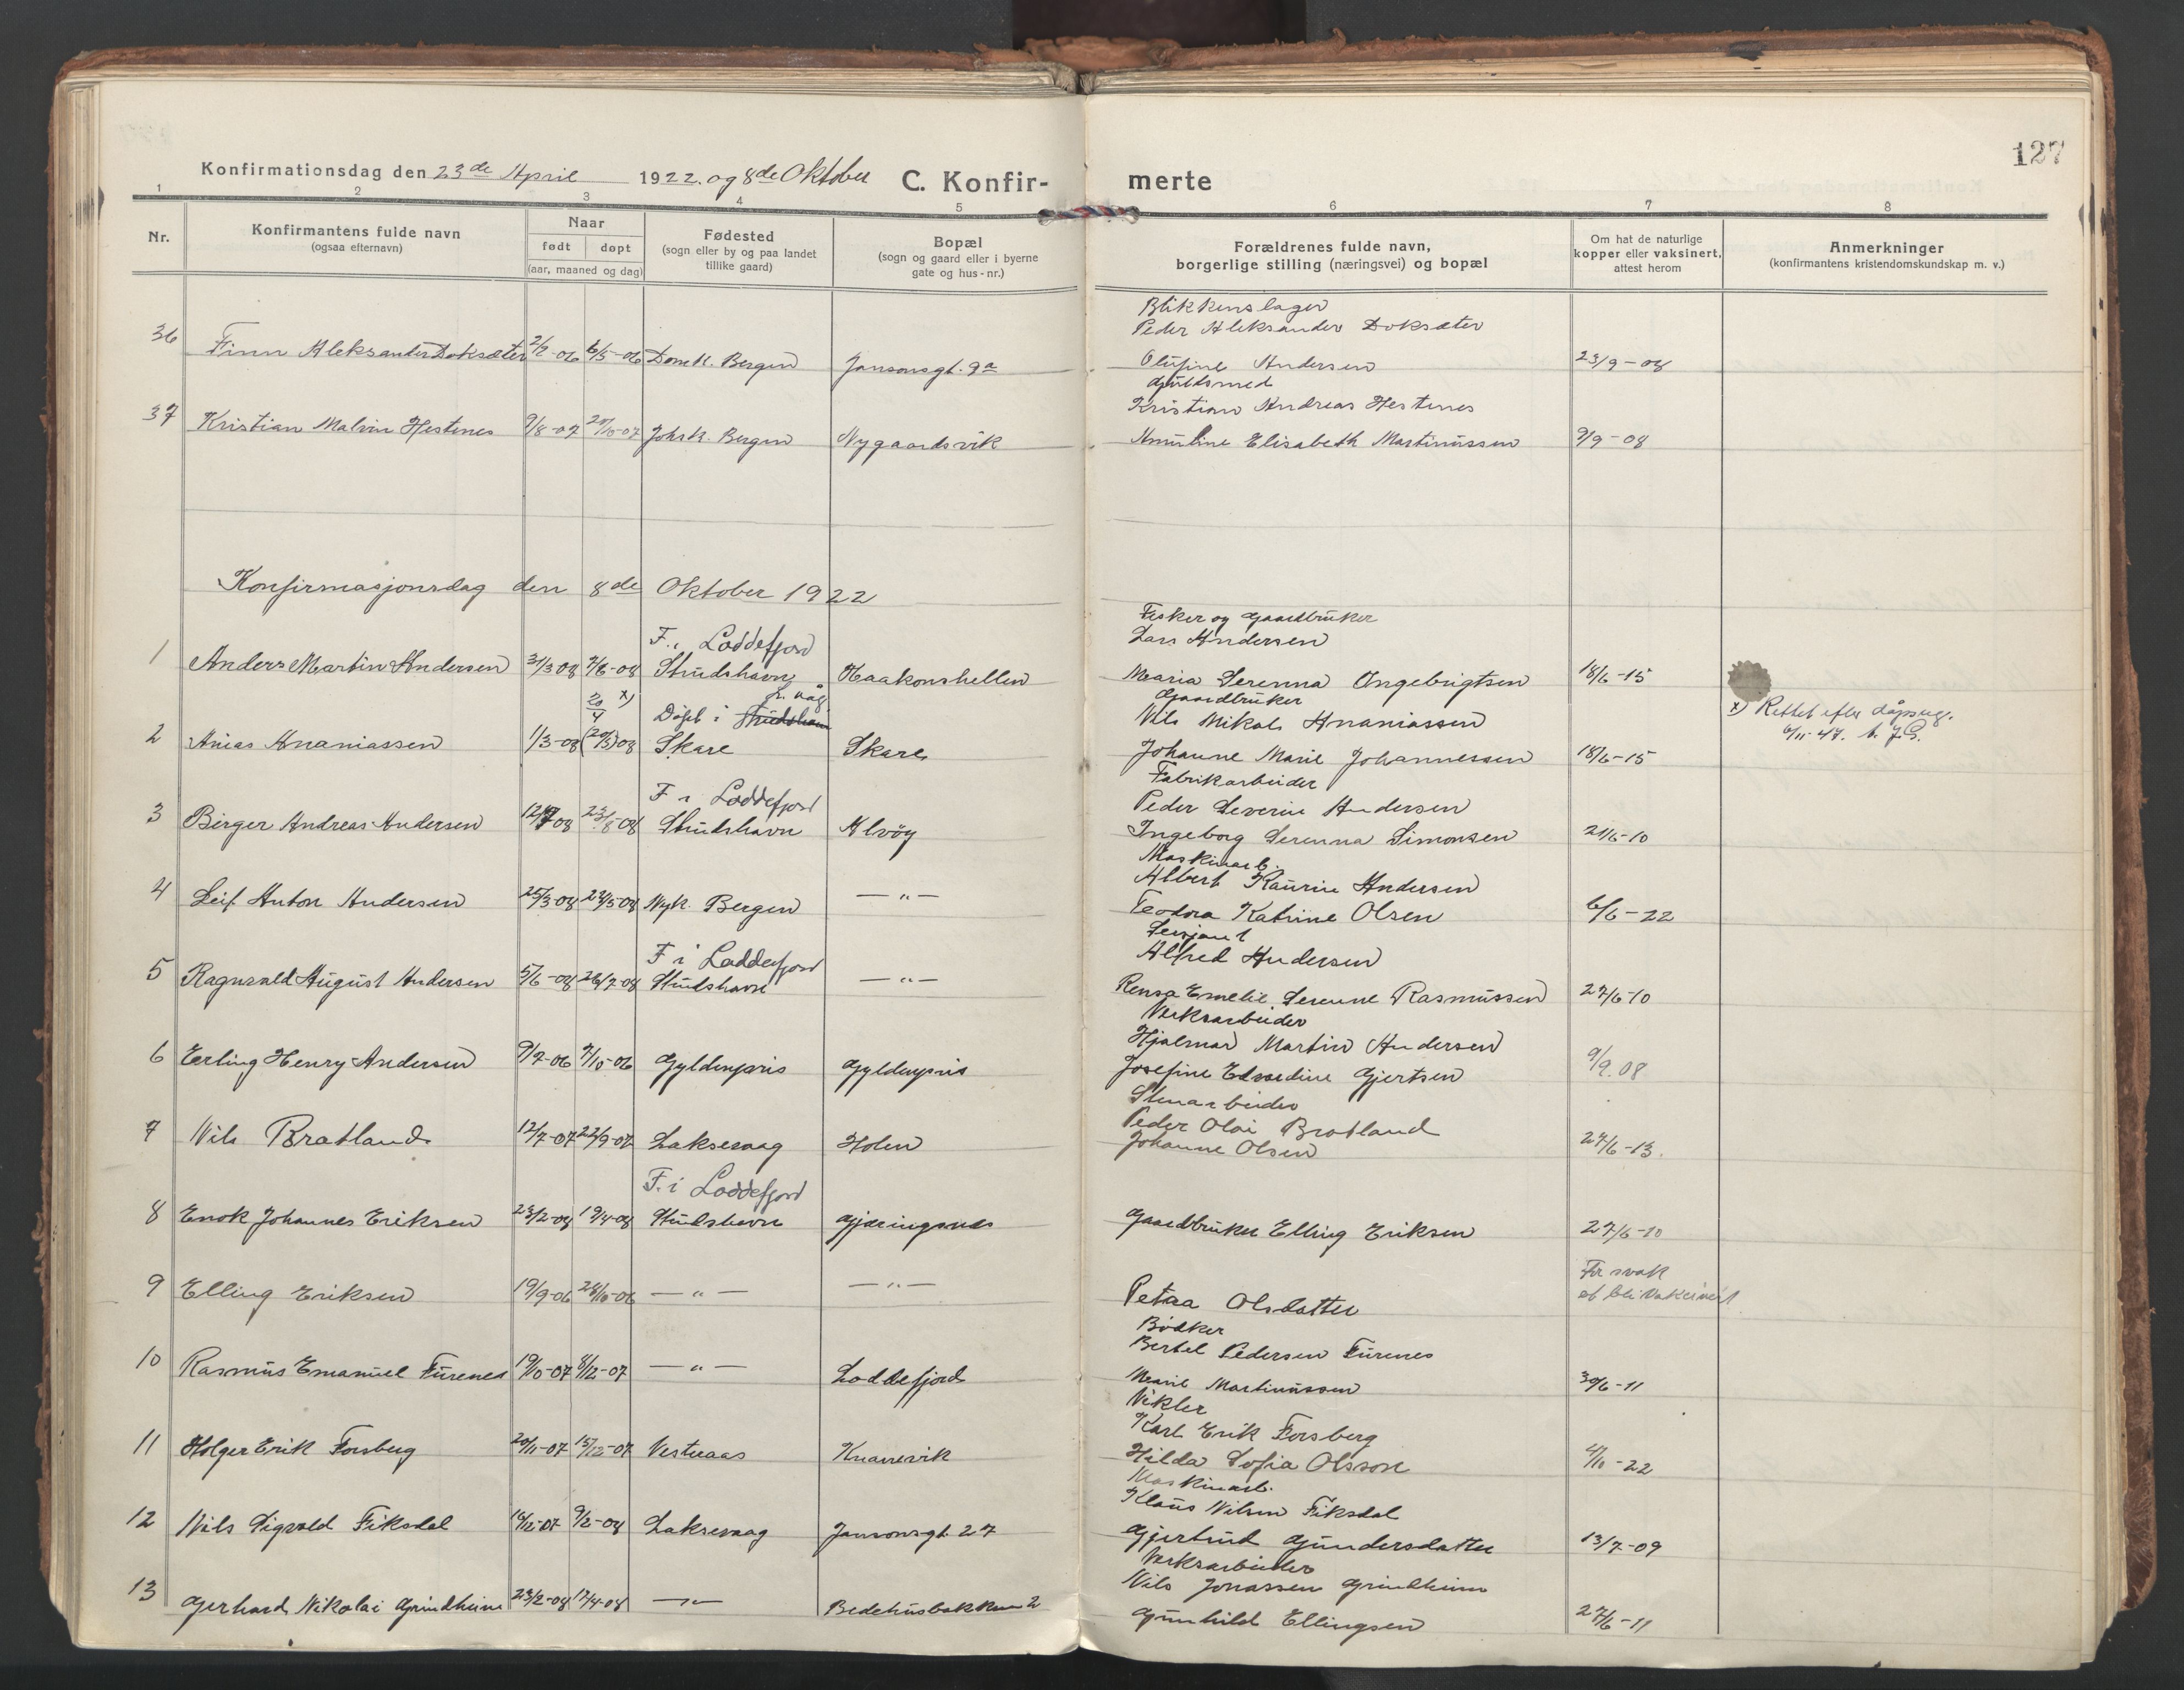 127
Konfirmationsdag den 23de April 1922. og 8de Oktober C. Konfir- merte
1 2 3 4 5 6 7 8
Nr.
Konfirmantens fulde navn
(ogsaa efternavn)
Naar
født døpt
(aar, maaned og dag)
Fødested
(sogn eller by og paa landet
tillike gaard)
Bopæl
(sogn og gaard eller i byerne
gate og hus-nr.)
Forældrenes fulde navn,
borgerlige stilling (næringsvei) og bopæl
Om hat de naturlige
kopper eller vaksinert,
attest herom
Anmerkninger
(konfirmantens kristendomskundskap m. v.)
Blikkenslager
Peder Aleksander Doksæter
36 Finn Aleksander Doksæter 2/2-06 6/5-06 Domk. Bergen Jansonsgt. 9a Olufine Andersen 23/9-08
Guldsmed
Kristian Andreas Hestenes
37 Kristian Malvin Hestenes 9/8-07 20/10-07 Johsk. Bergen Nygaardsvik Amuline Elisabeth Martinussen 9/9-08
Konfirmasjonsdag den 8de Oktober 1922
Fisker og Gaardbruker
F. i Loddefjord Lars Andersen
1 Anders Martin Andersen 31/3 08 7/6-08 Studshavn Haakonshellen Maria Serenna Ingebrigtsen 18/6-15
Gaardbruker
20/4 x) Døpt i Studshavn Nils Mikal Ananiassen x) Rettet efter dåpsreg.
6/11-47.
2 Anias Ananiassen 1/3-08 (20/3) 08 Skare Skare Johanne Marie Johannessen 18/6-15
Fabrikarbeider
F i Loddefjord Peder Severin Andersen
3 Birger Andreas Andersen 12/7 08 23/8-08 Studshavn Alvøy Ingeborg Serenna Simonsen 21/6-10
Maskinarb.
Albert Kaurin Andersen
4 Leif Anton Andersen 25/3-08 24/5-08 Nyk. Bergen —"— Teodora Katrine Olsen 6/6-22
Sersjant
F i Loddefjord Alfred Andersen
5 Ragnvald August Andersen 5/6-08 26/7-08 Studshavn —"— Rensa Emelie Serenne Rasmussen 27/6-10
Verksarbeider
Hjalmar Martin Andersen
6 Erling Henry Andersen 9/7-06 7/10-06 Gyldenpris Gyldenpris Josefine Edvardine Gjertsen 9/9.08
Stenarbeider
Peder Olai Bratland
7 Nils Bratland 12/7-07 22/9-07 Laksevaag Holen Johanne Olsen 27/6-13.
F. i Loddefjord
8 Enok Johannes Eriksen 23/2-08 19/4-08 Studshavn Gjæringsnes Gaardbruker Elling Eriksen 27/6-10
For svak
9 Elling Eriksen 19/9-06 28/10-06 —"— —"— Petraa Olsdatter at bli vaksinert
Bødker
Bertel Pedersen Furenes
10 Rasmus Emanuel Furenes 19/10-07 8/12-07 —"— Loddefjord Marie Martinussen 30/6-11
Vikler
Karl Erik Forsberg
11 Holger Erik Forsberg 20/11-07 15/12-07 Vesteraas Knarrevik Hilda Sofia Olsson 4/10-22
Maskinarb.
Klaus Nilsen Fiksdal
12 Nils Sigvald Fiksdal 16/12-07 9/2-08 Laksevaag Jansonsgt. 27 Gjertrud Gundersdatter 13/7-09
Verksarbeider
Nils Jonassen Grindheim
13 Gerhard Nikolai Grindheim 23/2-08 12/4-08 —"— Bedehusbakken 2 Gunhild Ellingsen 27/6-11